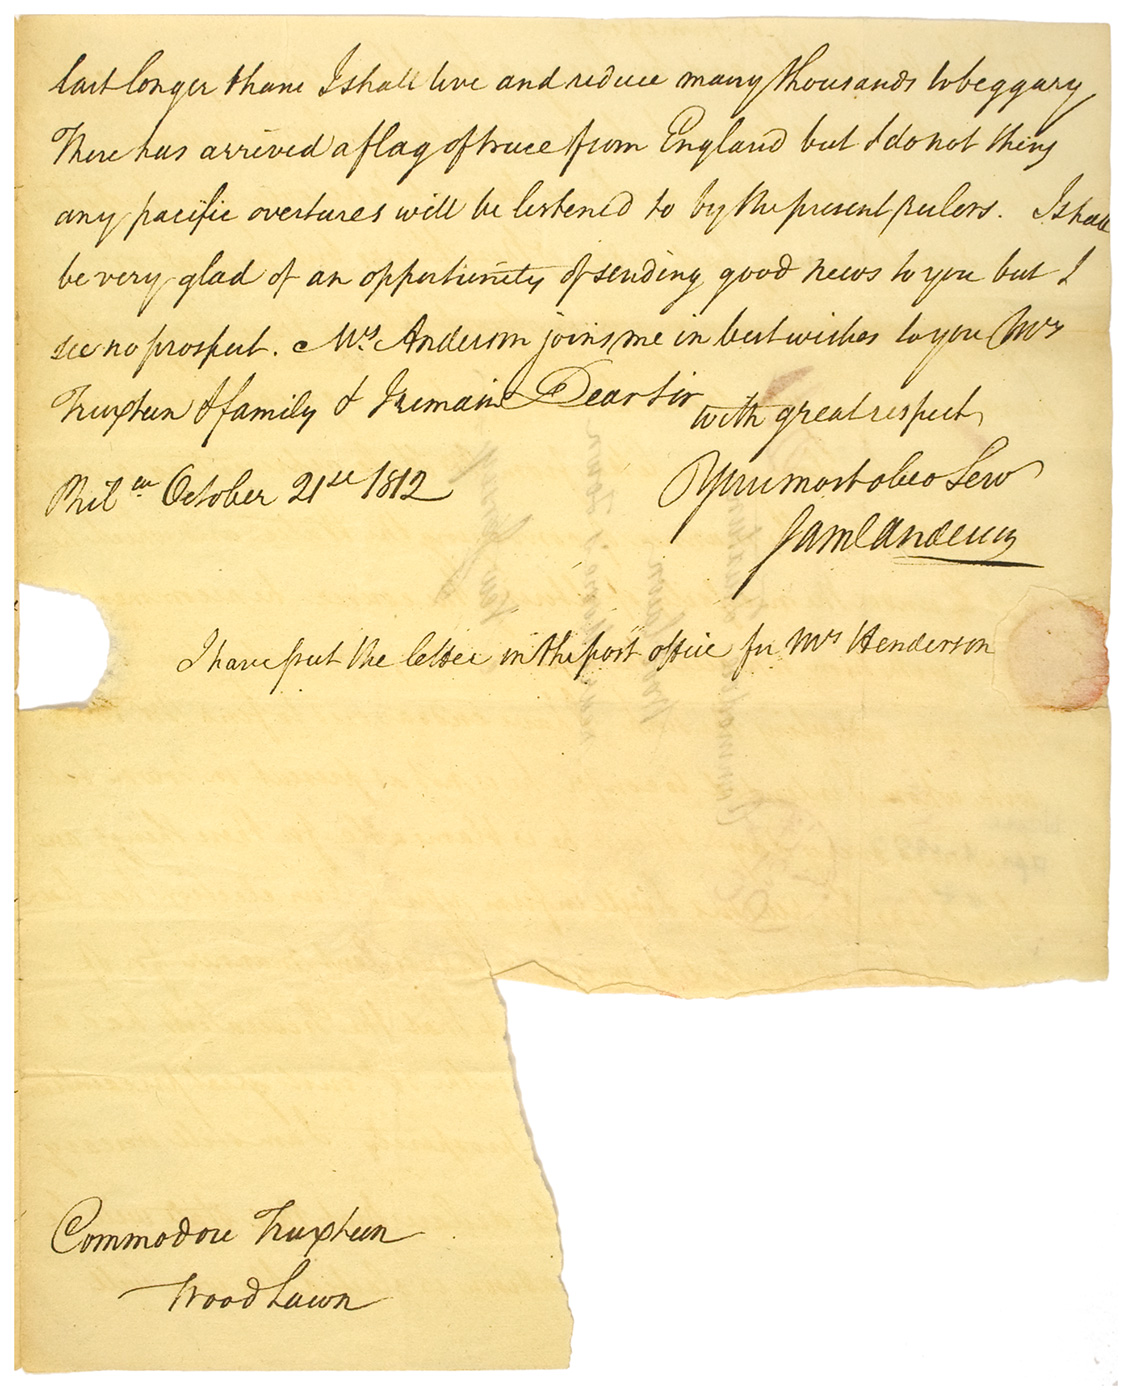 last longer thane I shall live and reduce many thousands to beggary
There has arrived a flag of truce from England but I do not think
any pacific overtures will be listened to by the present rulers. I shall
be very glad of an opportunity of sending good news to you but I
see no prospect. Mrs. Anderson joins me in best wishes to you Mrs
Truxtun & family & I remain Dear Sir
with great respect
Your most obeo Serv
Saml Anderson
Phil.a October 21st 1812
I have put the letter in the post office for Mrs Henderson
Commodore Truxtun
Wood Lawn